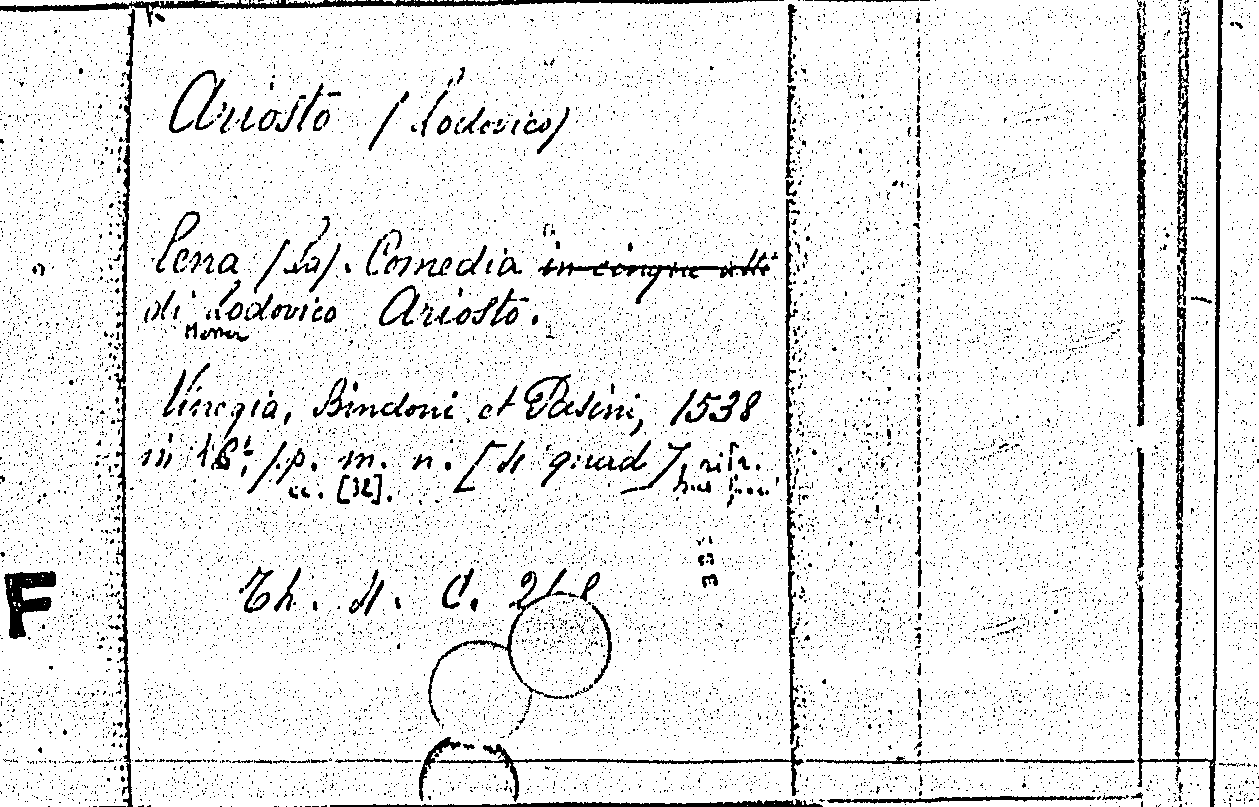 Ariosto (Lodovico)
Lena (La). Comedia in cinque atti
di Lodovico Ariosto.
Messer
Vinegia, Bindoni et Pasini, 1538
in 16°, p. m. n. [4 quad],
cc. [32].
Th. 4. C.
F